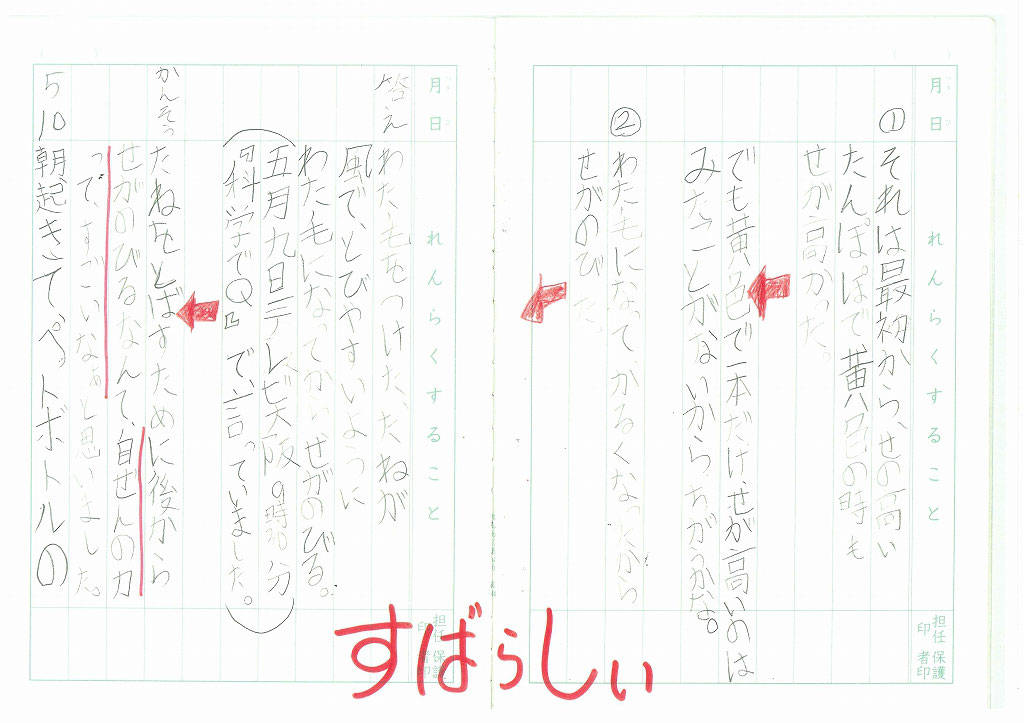 月日
れんらくすること
担任印
保護者印
①
それは最初から、せの高い
たんぽぽで、黄色の時も
せが高かった。
でも黄色で一本だけ、せが高いのは
みたことがないから、ちがうかな。
②
わた毛になって、かるくなったから
せがのびた。
月日
れんらくすること
担任印
保護者印
答え
わた毛をつけた、たねが
風で、とびやすいように
わた毛になってから、せがのびる。
(五月九日テレビ大阪9時30分
科学でQ」で言っていました。)
かんそう
たねをとばすために後から
せがのびるなんて、自ぜんの力
って、すごいなぁと思いました。
5 10 朝起きて、ペットボトルの
すばらしい